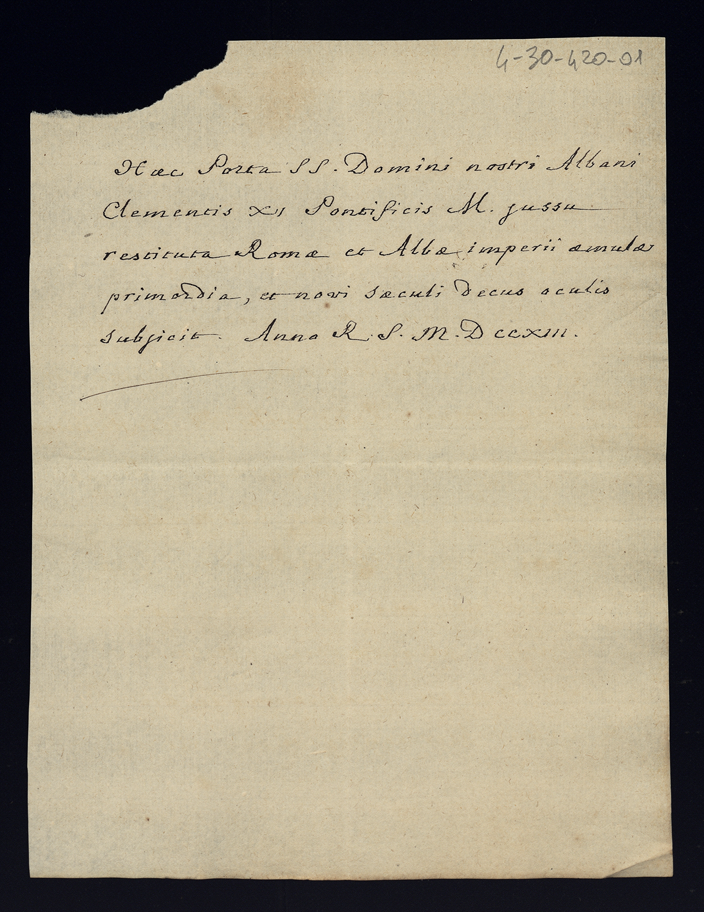 4-30-420-01
Hæc Porta SS. Domini nostri Albani
Clementis XI Pontificis M. jussu
restituta Romæ et Albæ imperii æmulæ
primordia, et novi sæculi decus oculis
subjicit. Anno R. S. M.DCCXIII.